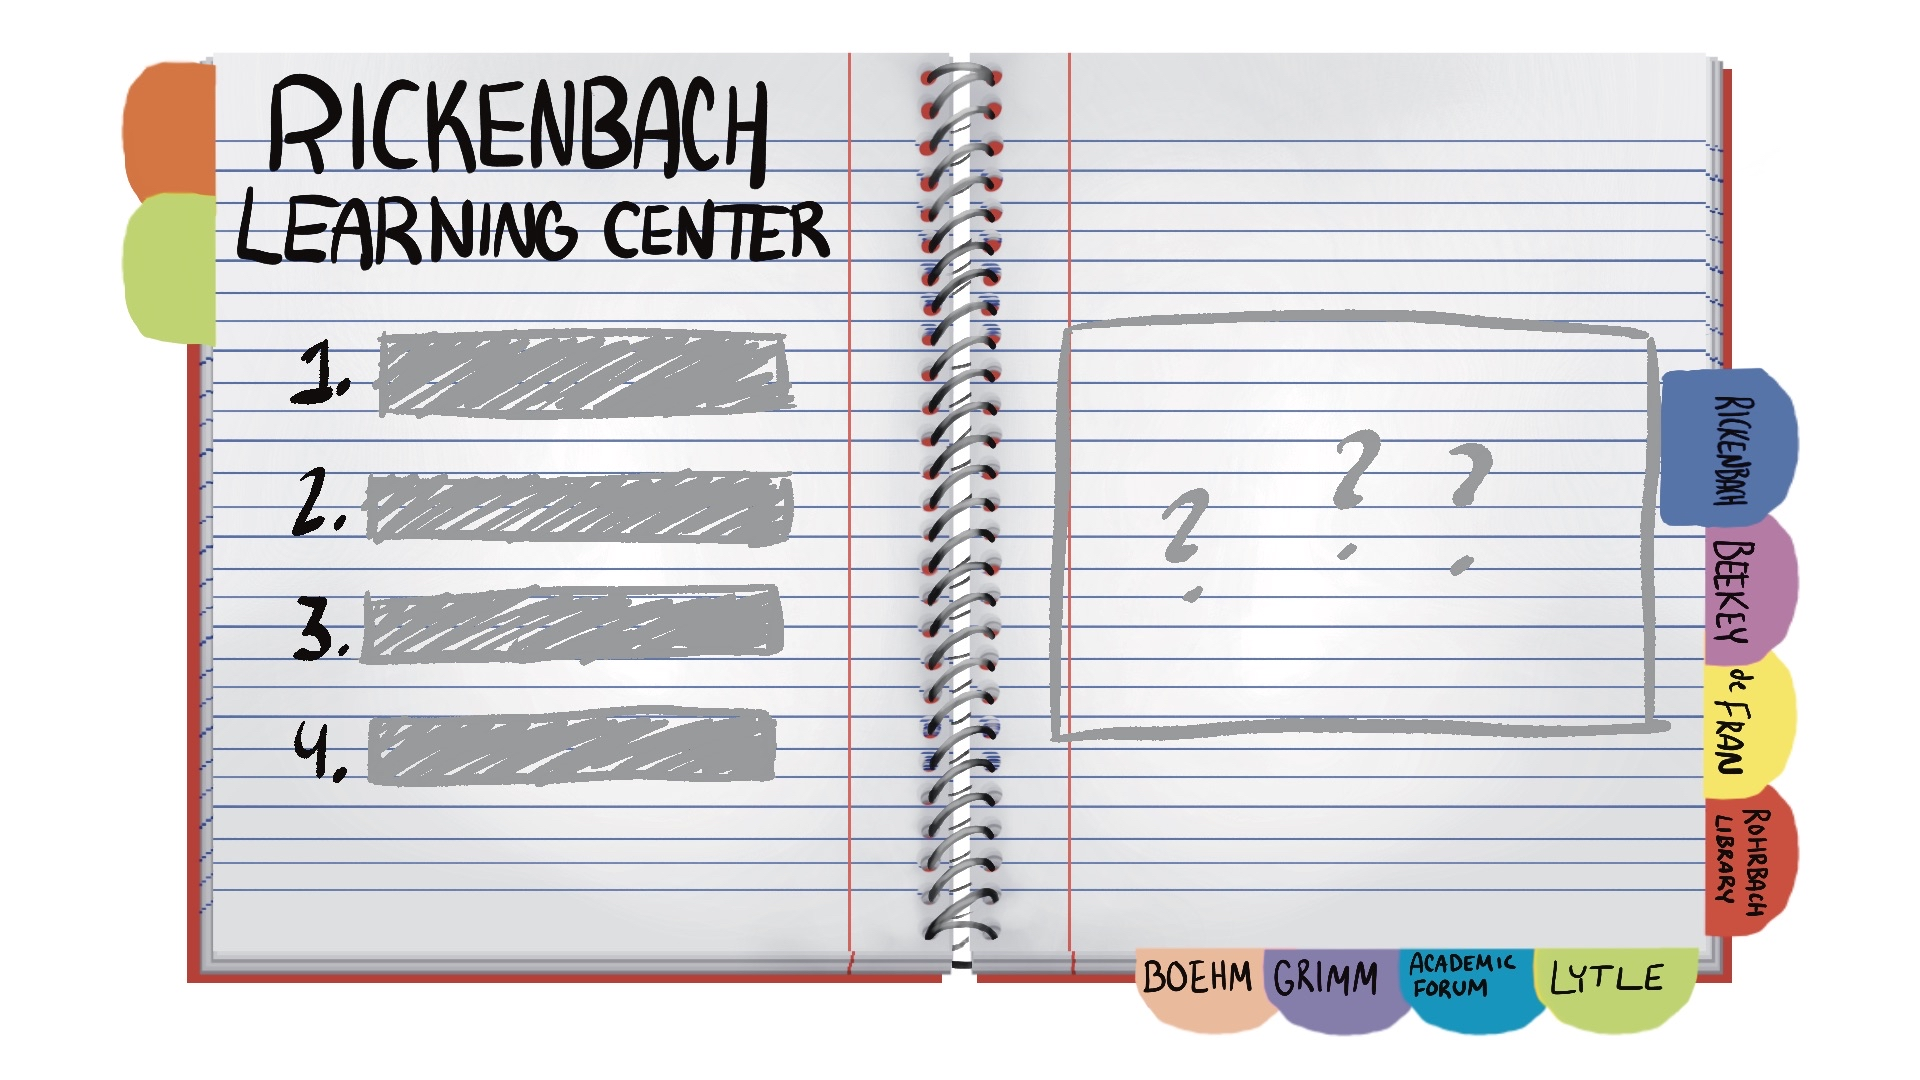 RICKENBACH
LEARNING CENTER
1.
2.
3.
4.
? ? ?
RICKENBACH
BEEKEY
de FRAN
ROHRBACH
LIBRARY
BOEHM
GRIMM
ACADEMIC
FORUM
LYTLE